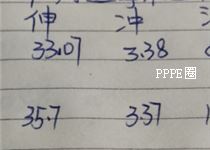 伸 冲
33.07 3.38
PPPE圈
35.7 3.37